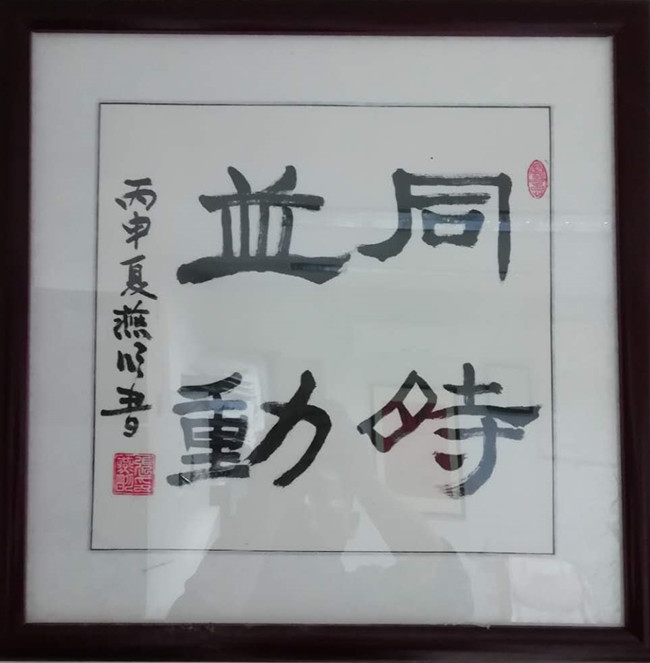 同時
並動
丙申夏書